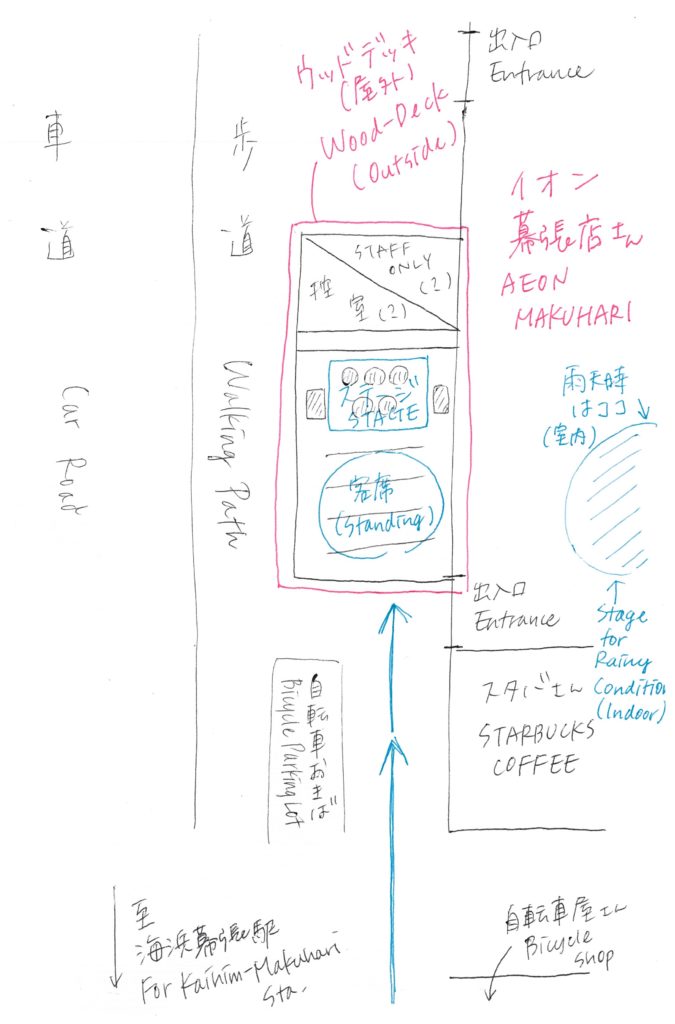 出入口
Entrance
ウッドデッキ
(屋外)
Wood-Deck
(Outside)
車道
Car Road
歩道
Walking Path
イオン
幕張店さん
AEON
MAKUHARI
STAFF
ONLY
(2)
控室(2)
ステージ
STAGE
客席
(Standing)
雨天時
はココ
(室内)
Stage
for
Rainy
Condition
(Indoor)
出入口
Entrance
自転車おきば
Bicycle Parking Lot
スタバさん
STARBUCKS
COFFEE
至
海浜幕張駅
For Kaihim-Makuhari
Sta.
自転車屋さん
Bicycle
Shop